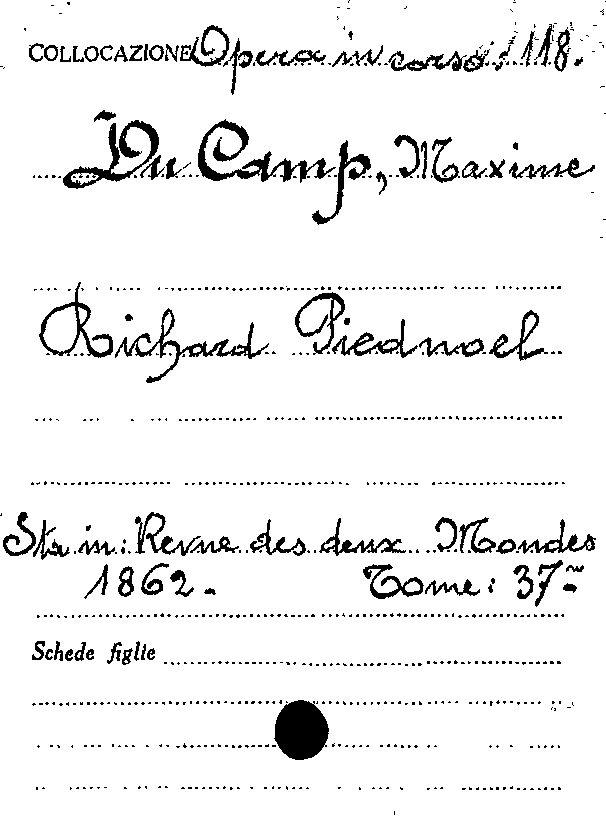 COLLOCAZIONE Opera in corso: 118.
Du Camp, Maxime
Richard Piednoel
Sta in: Revue des deux Mondes
1862. Tome: 37
Schede figlie